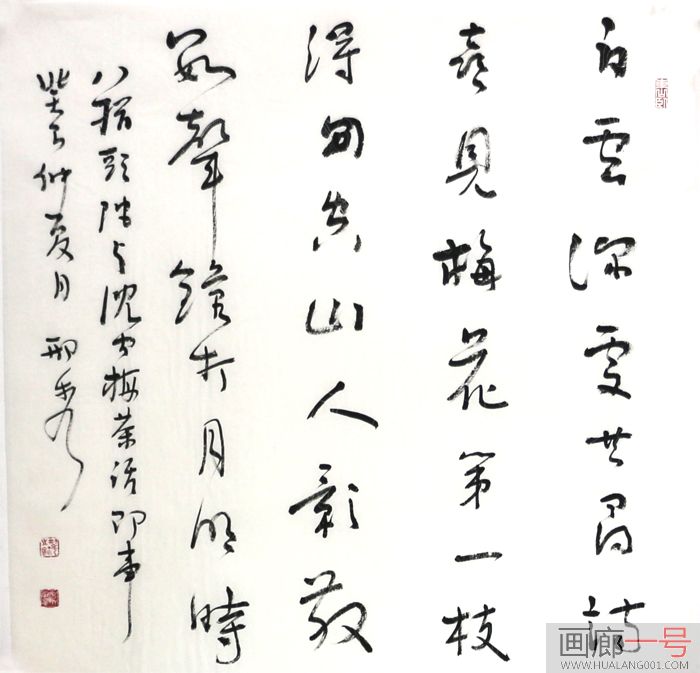 白雲深處共尋詩
喜見梅花第一枝
得句空山人影散
數聲鐘打月明時
八指頭陀与沈梅茶話即事
仲夏月 邢
画廊一号
WWW.HUALANG001.COM